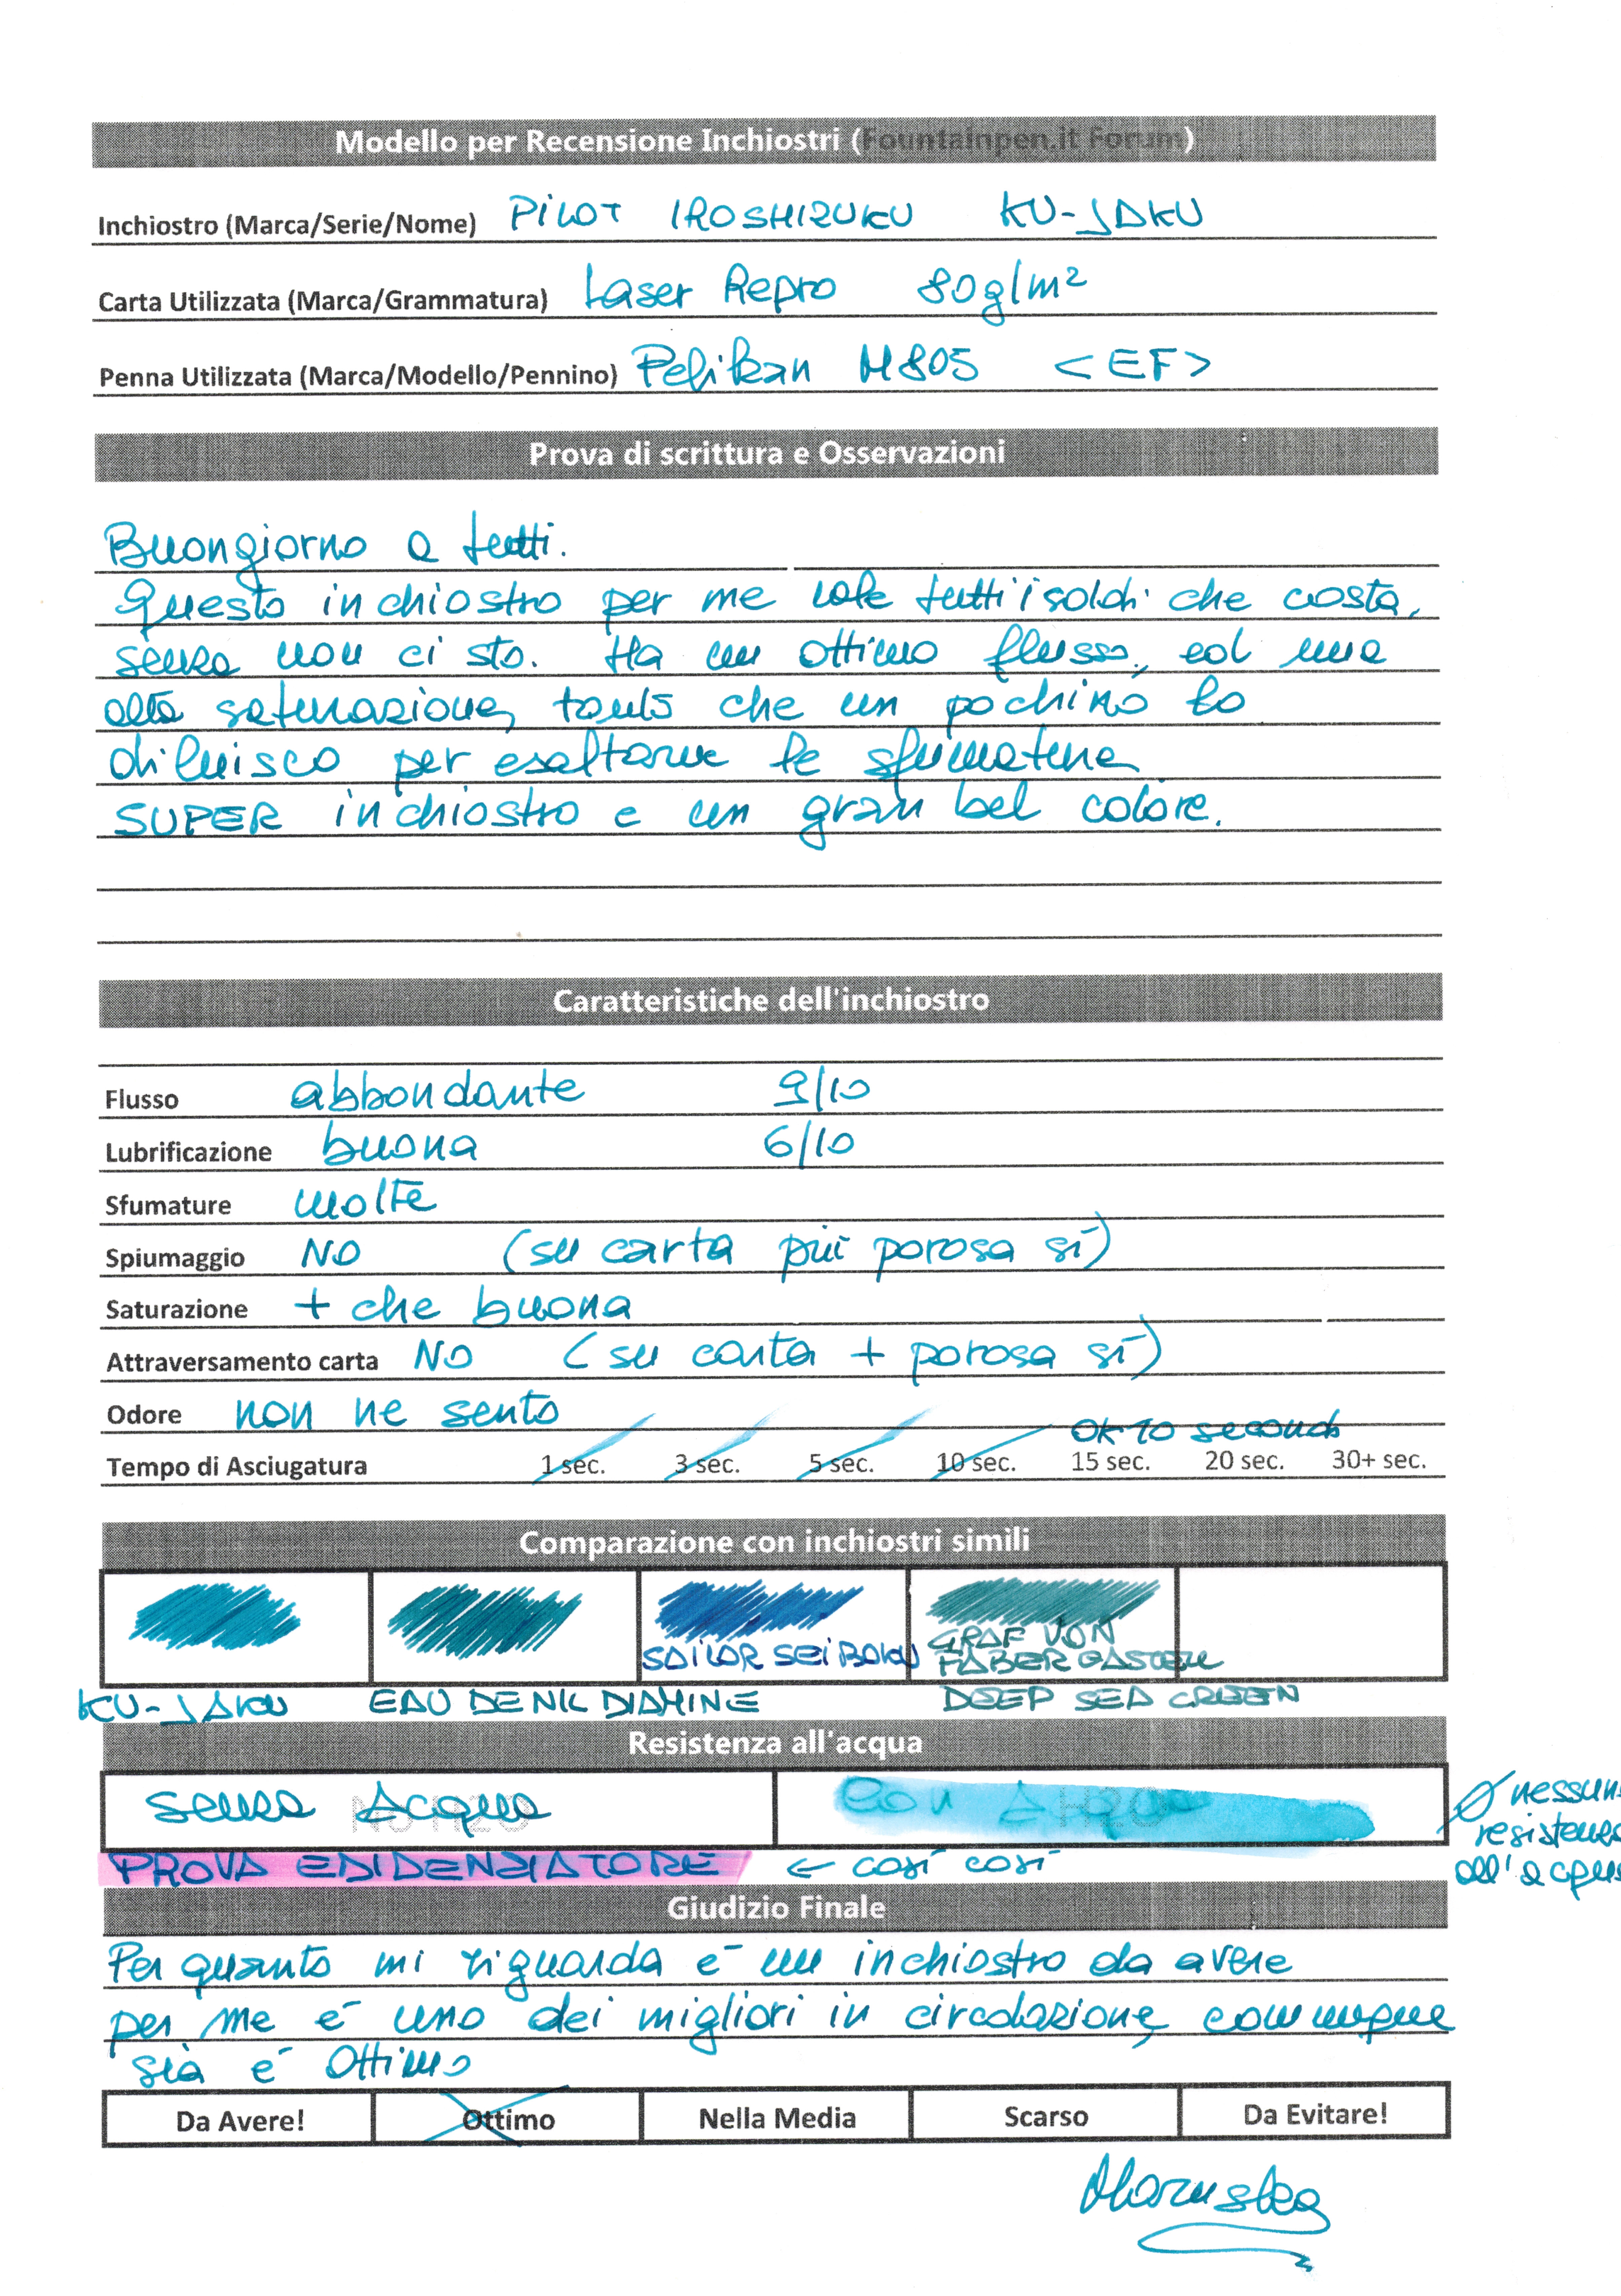 Modello per Recensione Inchiostri (Fountainpen.it Forum)
Inchiostro (Marca/Serie/Nome) PILOT IROSHIZUKU KU-JAKU
Carta Utilizzata (Marca/Grammatura) Laser Repro 80g/m²
Penna Utilizzata (Marca/Modello/Pennino) Pelikan M805 <EF>
Prova di scrittura e Osservazioni
Buongiorno a tutti.
Questo inchiostro per me vale tutti i soldi che costa,
senza non ci sto. Ha un ottimo flusso, ed una
alta saturazione, tanto che un pochino lo
diluisco per esaltarne le sfumature
SUPER inchiostro e un gran bel colore.
Caratteristiche dell'inchiostro
Flusso abbondante 9/10
Lubrificazione buona 6/10
Sfumature molte
Spiumaggio NO (su carta più porosa sì)
Saturazione + che buona
Attraversamento carta NO (su carta + porosa sì)
Odore non ne sento
OK 10 secondi
Tempo di Asciugatura 1 sec. 3 sec. 5 sec. 10 sec. 15 sec. 20 sec. 30+ sec.
Comparazione con inchiostri simili
SAILOR SEIBOKU GRAF VON
FABER CASTELL
KU-JAKU EAU DE NIL DIAMINE DEEP SEA GREEN
Resistenza all'acqua
Senza Acqua No H2O Con Acqua H2O
Ø nessun
resistenza
all'acqua
PROVA EDIDENZIATORE ← così così
Giudizio Finale
Per quanto mi riguarda è un inchiostro da avere
per me è uno dei migliori in circolazione, comunque
già è Ottimo
Da Avere! Ottimo Nella Media Scarso Da Evitare!